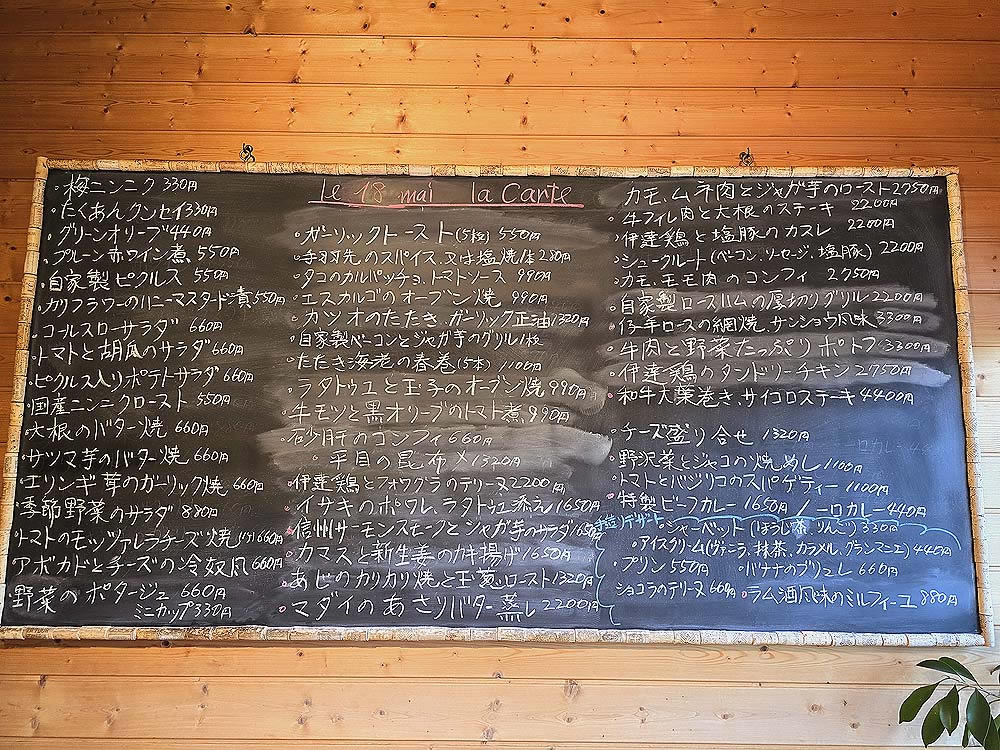 Le 18 mai la Carte
・梅ニンニク 330円
・たくあんクンセイ 330円
・グリーンオリーブ 440円
・プルーン赤ワイン煮、550円
・自家製ピクルス 550円
・カリフラワーのハニーマスタード漬 550円
・コールスローサラダ 660円
・トマトと胡瓜のサラダ 660円
・ピクルス入りポテトサラダ 660円
・国産ニンニクロースト 550円
・大根のバター焼 660円
・サツマ芋のバター焼 660円
・エリンギ茸のガーリック焼 660円
・季節野菜のサラダ 880円
・トマトのモッツァレラチーズ焼 660円
アボカドとチーズの冷奴風 660円
野菜のポタージュ 660円
ミニカップ 330円
・ガーリックトースト(5枚) 550円
・手羽先のスパイス、又は塩焼 280円
・タコのカルパッチョ、トマトソース 990円
・エスカルゴのオーブン焼 990円
・カツオのたたき、ガーリック正油 1320円
・自家製ベーコンとジャガ芋のグリル
・たたき海老の春巻(5本) 1100円
・ラタトゥユと玉子のオーブン焼 990円
・牛モツと黒オリーブのトマト煮、990円
・砂肝のコンフィ 660円
・平目の昆布〆 1320円
・伊達鶏とフォワグラのテリーヌ 2200円
・イサキのポワレ、ラタトゥユ添え 1650円
・信州サーモンスモークとジャガ芋のサラダ 1650円
・カマスと新生姜のカキ揚げ 1650円
・あじのカリカリ焼と玉葱ロースト 1320円
・マダイのあさりバター蒸し 2200円
カモ、ムネ肉とジャガ芋のロースト 2750円
・牛フィレ肉と大根のステーキ 2200円
・伊達鶏と塩豚のカスレ 2200円
・シュークルート(ベーコン、ソーセージ、塩豚) 2200円
・カモ、モモ肉のコンフィ 2750円
・自家製ロースハムの厚切りグリル 2200円
・仔羊ロースの網焼、サンショウ風味 3300円
・牛肉と野菜たっぷりポトフ 3300円
・伊達鶏のタンドリーチキン 2750円
・和牛大葉巻き、サイコロステーキ 4400円
・チーズ盛り合せ 1320円
・野沢菜とジャコの焼めし 1100円
・トマトとバジリコのスパゲティー 1100円
・特製ビーフカレー 1650円 / 一口カレー 440円
デザート
・シャーベット(ほうじ茶、りんご) 330円
・アイスクリーム(ヴァニラ、抹茶、カラメル、グランマニエ) 440円
・プリン 550円 ・バナナのブリュレ 660円
ショコラのテリーヌ 660円 ・ラム酒風味のミルフィーユ 880円